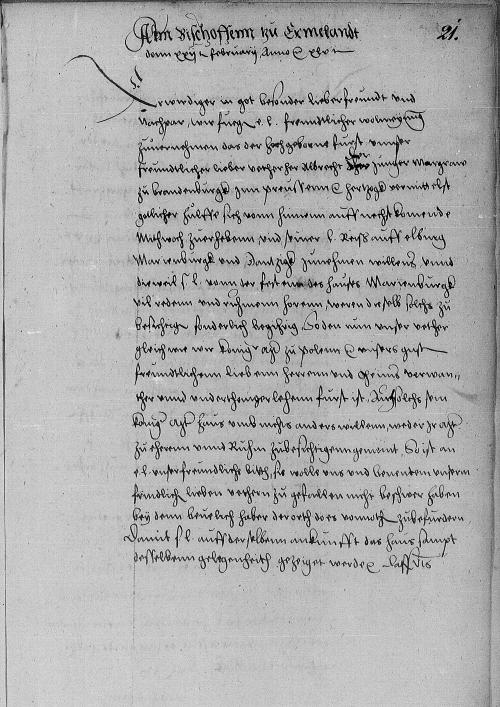 Ahm Bischoffenn zu Ermelandt
21.
denn xxij t february Anno &c xlv t
Erwirdiger in got besonder lieber freundt und
Nachpar, wir fuegen e. l. freundtlicher wolmeynung
zuvernehmen das der hochgeborne furst unser
freundtlicher lieber vetter her Albrecht der Junger Marggraw
zu brandenburgk Inn preussenn &c hertzogk vermittelst
gotlicher hulffe sich vonn hinnen auff nechst komende
Mithwoch zuerhebenn und seiner l. Reiß auff elbing
Marienburgk und Dantzigk zunehmen willens unnd
dieweil s. l. vonn der festenn des hauses Marienburgk
vil redenn und ruhmenn horenn, weren dieselb solchs zu
besichtig. sonderlich begihrig. So den nun unser vetter
gleich wie wir konig. Mt zu polenn &c unsers gnst
freundtlichenn liebenn herrenn und oheims verwan-
ther unnd underthenger lehenn furst ist, Auch solchs sein
konig. Mt haus umb nichts anders willenn, weder Ir Mt
zu eherenn unnd Ruhm zubesichtigenn gemeint, So ist an
e. l. unser freundtliche bith, sie wolle uns und benentem unserm
freundtlich lieben vettern zu gefallen nicht beschwer haben
bey denn bevelich haber der orth do es vonnoth. zubefurdern
Damit s. l. auff derselbenn ankunfft das haus sampt
desselbenn gelegenheith gezeiget werde &c